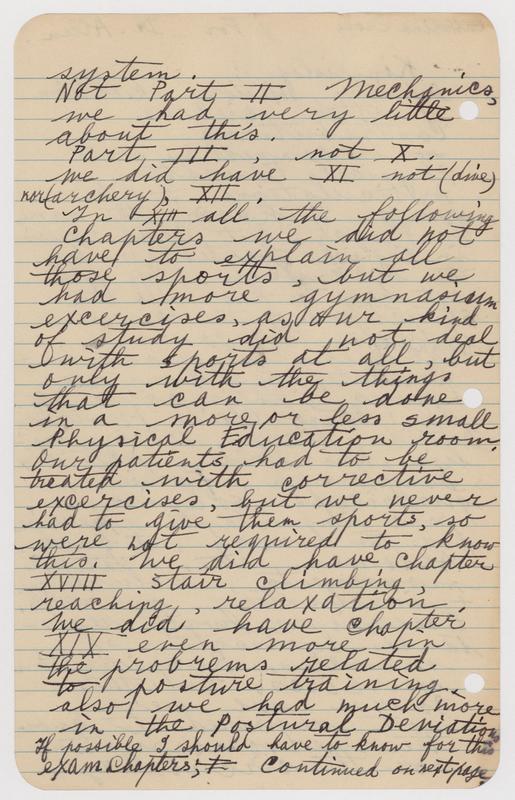 system.
Not Part II Mechanics,
we had very little
about this.
Part III, not X.
we did have XI not (dive)
nor (archery), XII.
In XIII all the following
chapters we did not
have to explain all
those sports, but we
had more gymnasium
excercises, as our kind
of study did not deal
with sports at all, but
only with the things
that can be done
in a more or less small
Physical Education room.
Our patients had to be
treated with corrective
excercises, but we never
had to give them sports, so
were not required to know
this. We did have chapter
XVIII stair climbing,
reaching, relaxation.
We did have chapter
XIX even more in
the probrems related
to posture training.
also we had much more
in the Postural Deviations
If possible I should have to know for this
exam Chapters; Continued on next page